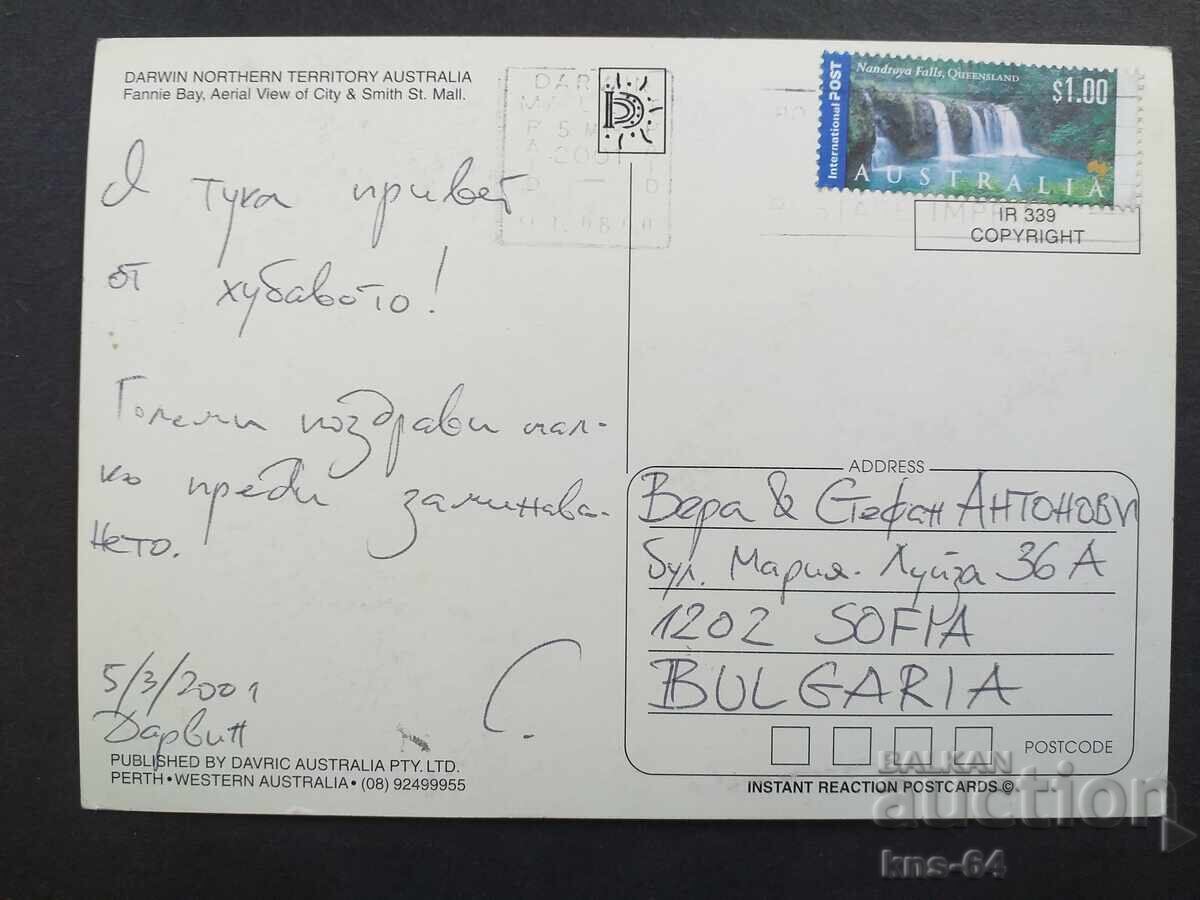 DARWIN NORTHERN TERRITORY AUSTRALIA
Fannie Bay, Aerial View of City & Smith St. Mall.
Я тука привет
от хубавото!
Големи поздрави мал-
ко преди заминава-
нето.
5/3/2001
Дарвин
С.
PUBLISHED BY DAVRIC AUSTRALIA PTY. LTD.
PERTH • WESTERN AUSTRALIA • (08) 92499955
D
DAR
5 M
2001
International POST
Nandroya Falls, QUEENSLAND
$1.00
AUSTRALIA
IR 339
COPYRIGHT
ADDRESS
Вера & Стефан АНТОНОВИ
бул. Мария-Луиза 36 А
1202 SOFIA
BULGARIA
POSTCODE
INSTANT REACTION POSTCARDS ©
BALKAN
auction
kns-64